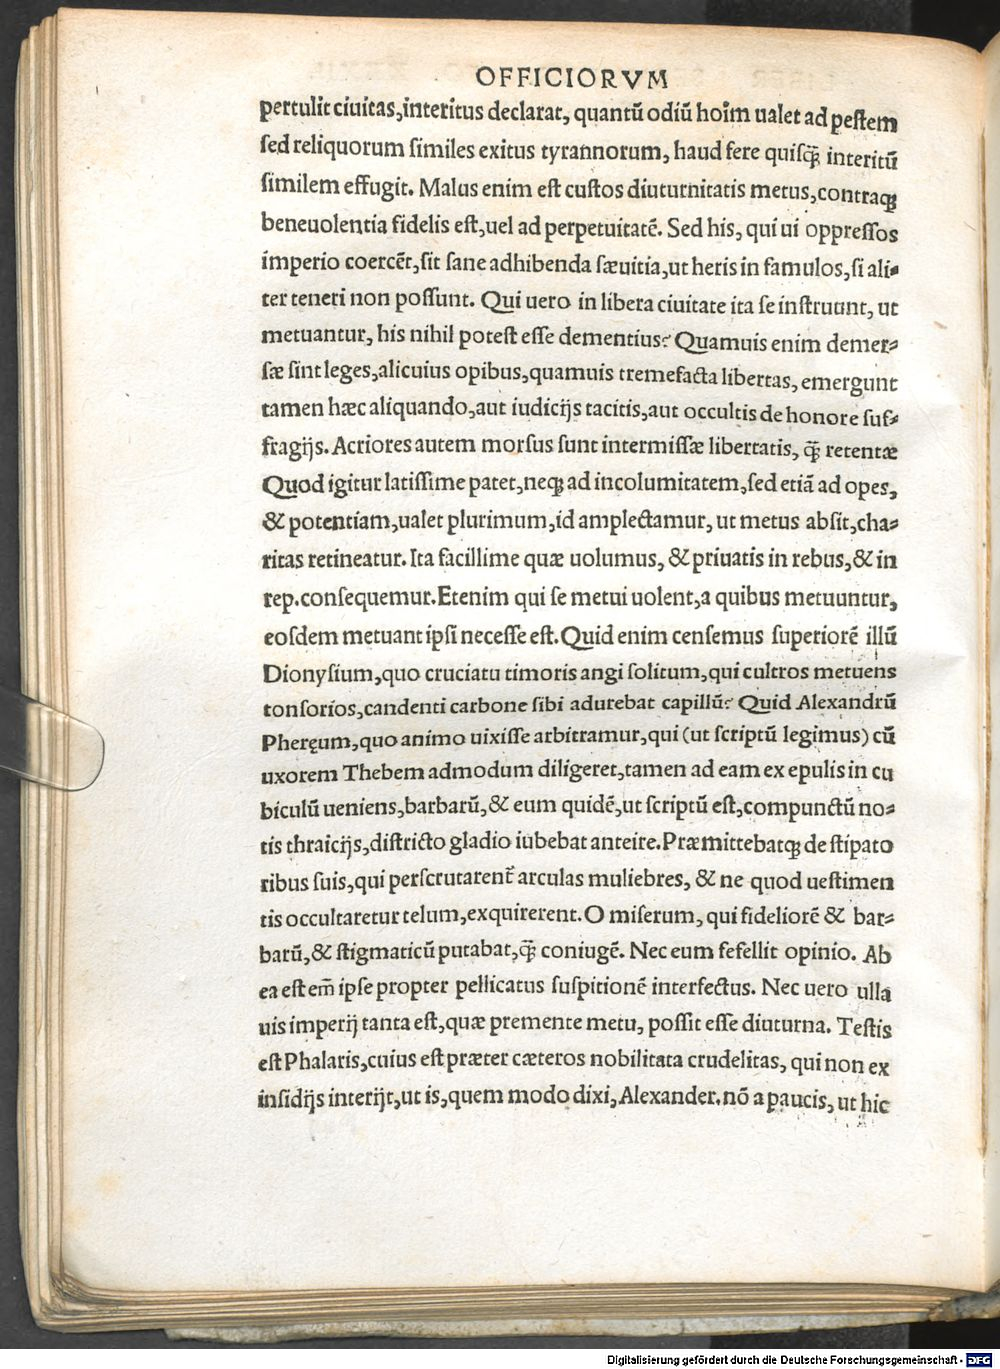 OFFICIORVM
pertulit ciuitas,interitus declarat, quantũ odiũ hoĩm ualet ad pestem
sed reliquorum similes exitus tyrannorum, haud fere quisq̃ interitũ
similem effugit. Malus enim est custos diuturnitatis metus,contraqꝫ
beneuolentia fidelis est,uel ad perpetuitatẽ. Sed his, qui ui oppressos
imperio coercẽt,sit sane adhibenda sæuitia,ut heris in famulos,si ali-
ter teneri non possunt. Qui uero in libera ciuitate ita se instruunt, ut
metuantur, his nihil potest esse dementius? Quamuis enim demer-
sæ sint leges,alicuius opibus,quamuis tremefacta libertas, emergunt
tamen hæc aliquando,aut iudicijs tacitis,aut occultis de honore suf-
fragijs. Acriores autem morsus sunt intermissæ libertatis, q̃ retentæ
Quod igitur latissime patet,neqꝫ ad incolumitatem,sed etiã ad opes,
& potentiam,ualet plurimum,id amplectamur, ut metus absit,cha-
ritas retineatur. Ita facillime quæ uolumus, & priuatis in rebus,& in
rep.consequemur.Etenim qui se metui uolent,a quibus metuuntur,
eosdem metuant ipsi necesse est. Quid enim censemus superiorẽ illũ
Dionysium,quo cruciatu timoris angi solitum,qui cultros metuens
tonsorios,candenti carbone sibi adurebat capillũ? Quid Alexandrũ
Pheręum,quo animo uixisse arbitramur,qui (ut scriptũ legimus) cũ
uxorem Thebem admodum diligeret,tamen ad eam ex epulis in cu
biculũ ueniens,barbarũ,& eum quidẽ,ut scriptũ est,compunctũ no-
tis thraicijs,districto gladio iubebat anteire.Præmittebatqꝫ de stipato
ribus suis,qui perscrutarent᷑ arculas muliebres, & ne quod uestimen
tis occultaretur telum,exquirerent.O miserum, qui fideliorẽ & bar-
barũ,& stigmaticũ putabat,q̃ coniugẽ. Nec eum fefellit opinio. Ab
ea est em̃ ipse propter pellicatus suspitionẽ interfectus. Nec uero ulla
uis imperij tanta est,quæ premente metu, possit esse diuturna. Testis
est Phalaris,cuius est præter cæteros nobilitata crudelitas, qui non ex
insidijs interijt,ut is,quem modo dixi,Alexander.nõ a paucis, ut hic
Digitalisierung gefördert durch die Deutsche Forschungsgemeinschaft - DFG